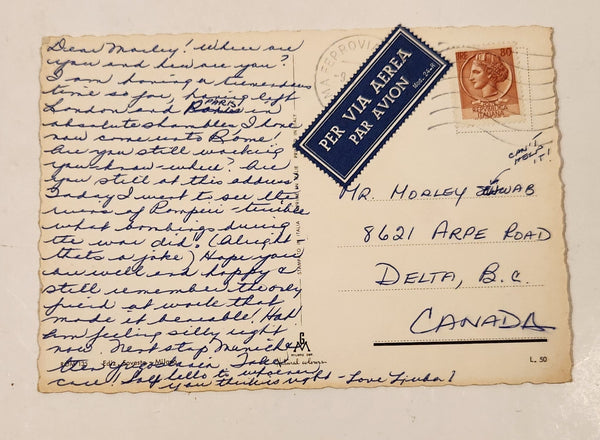 Dear Morley! Where are
you and how are you?
I am having a tremendous
time so far, having left
London and PARIS in
absolute shambles I have
now come unto Rome!
Are you still working
you know-where? Are
you still at this address
Today I went to see the
ruins of Pompeii - terrible
what bombings during
the war did! (Alright
thats a joke) Hope you
are well and happy &
still remember the only
friend at work that
made it bearable! Hah
Am feeling silly right
now. Next stop Munich &
then Take
care! Say hello to whoever
you think is right - Love Liuba!
PER VIA AEREA
PAR AVION
Mod. 24-R
FERROVIA
ITALIANA
L. 50
CAN'T
HELP
IT!
MR. MORLEY SCHWAB
8621 ARPE ROAD
DELTA, B.C.
CANADA
STAMPATO IN ITALIA
Milano